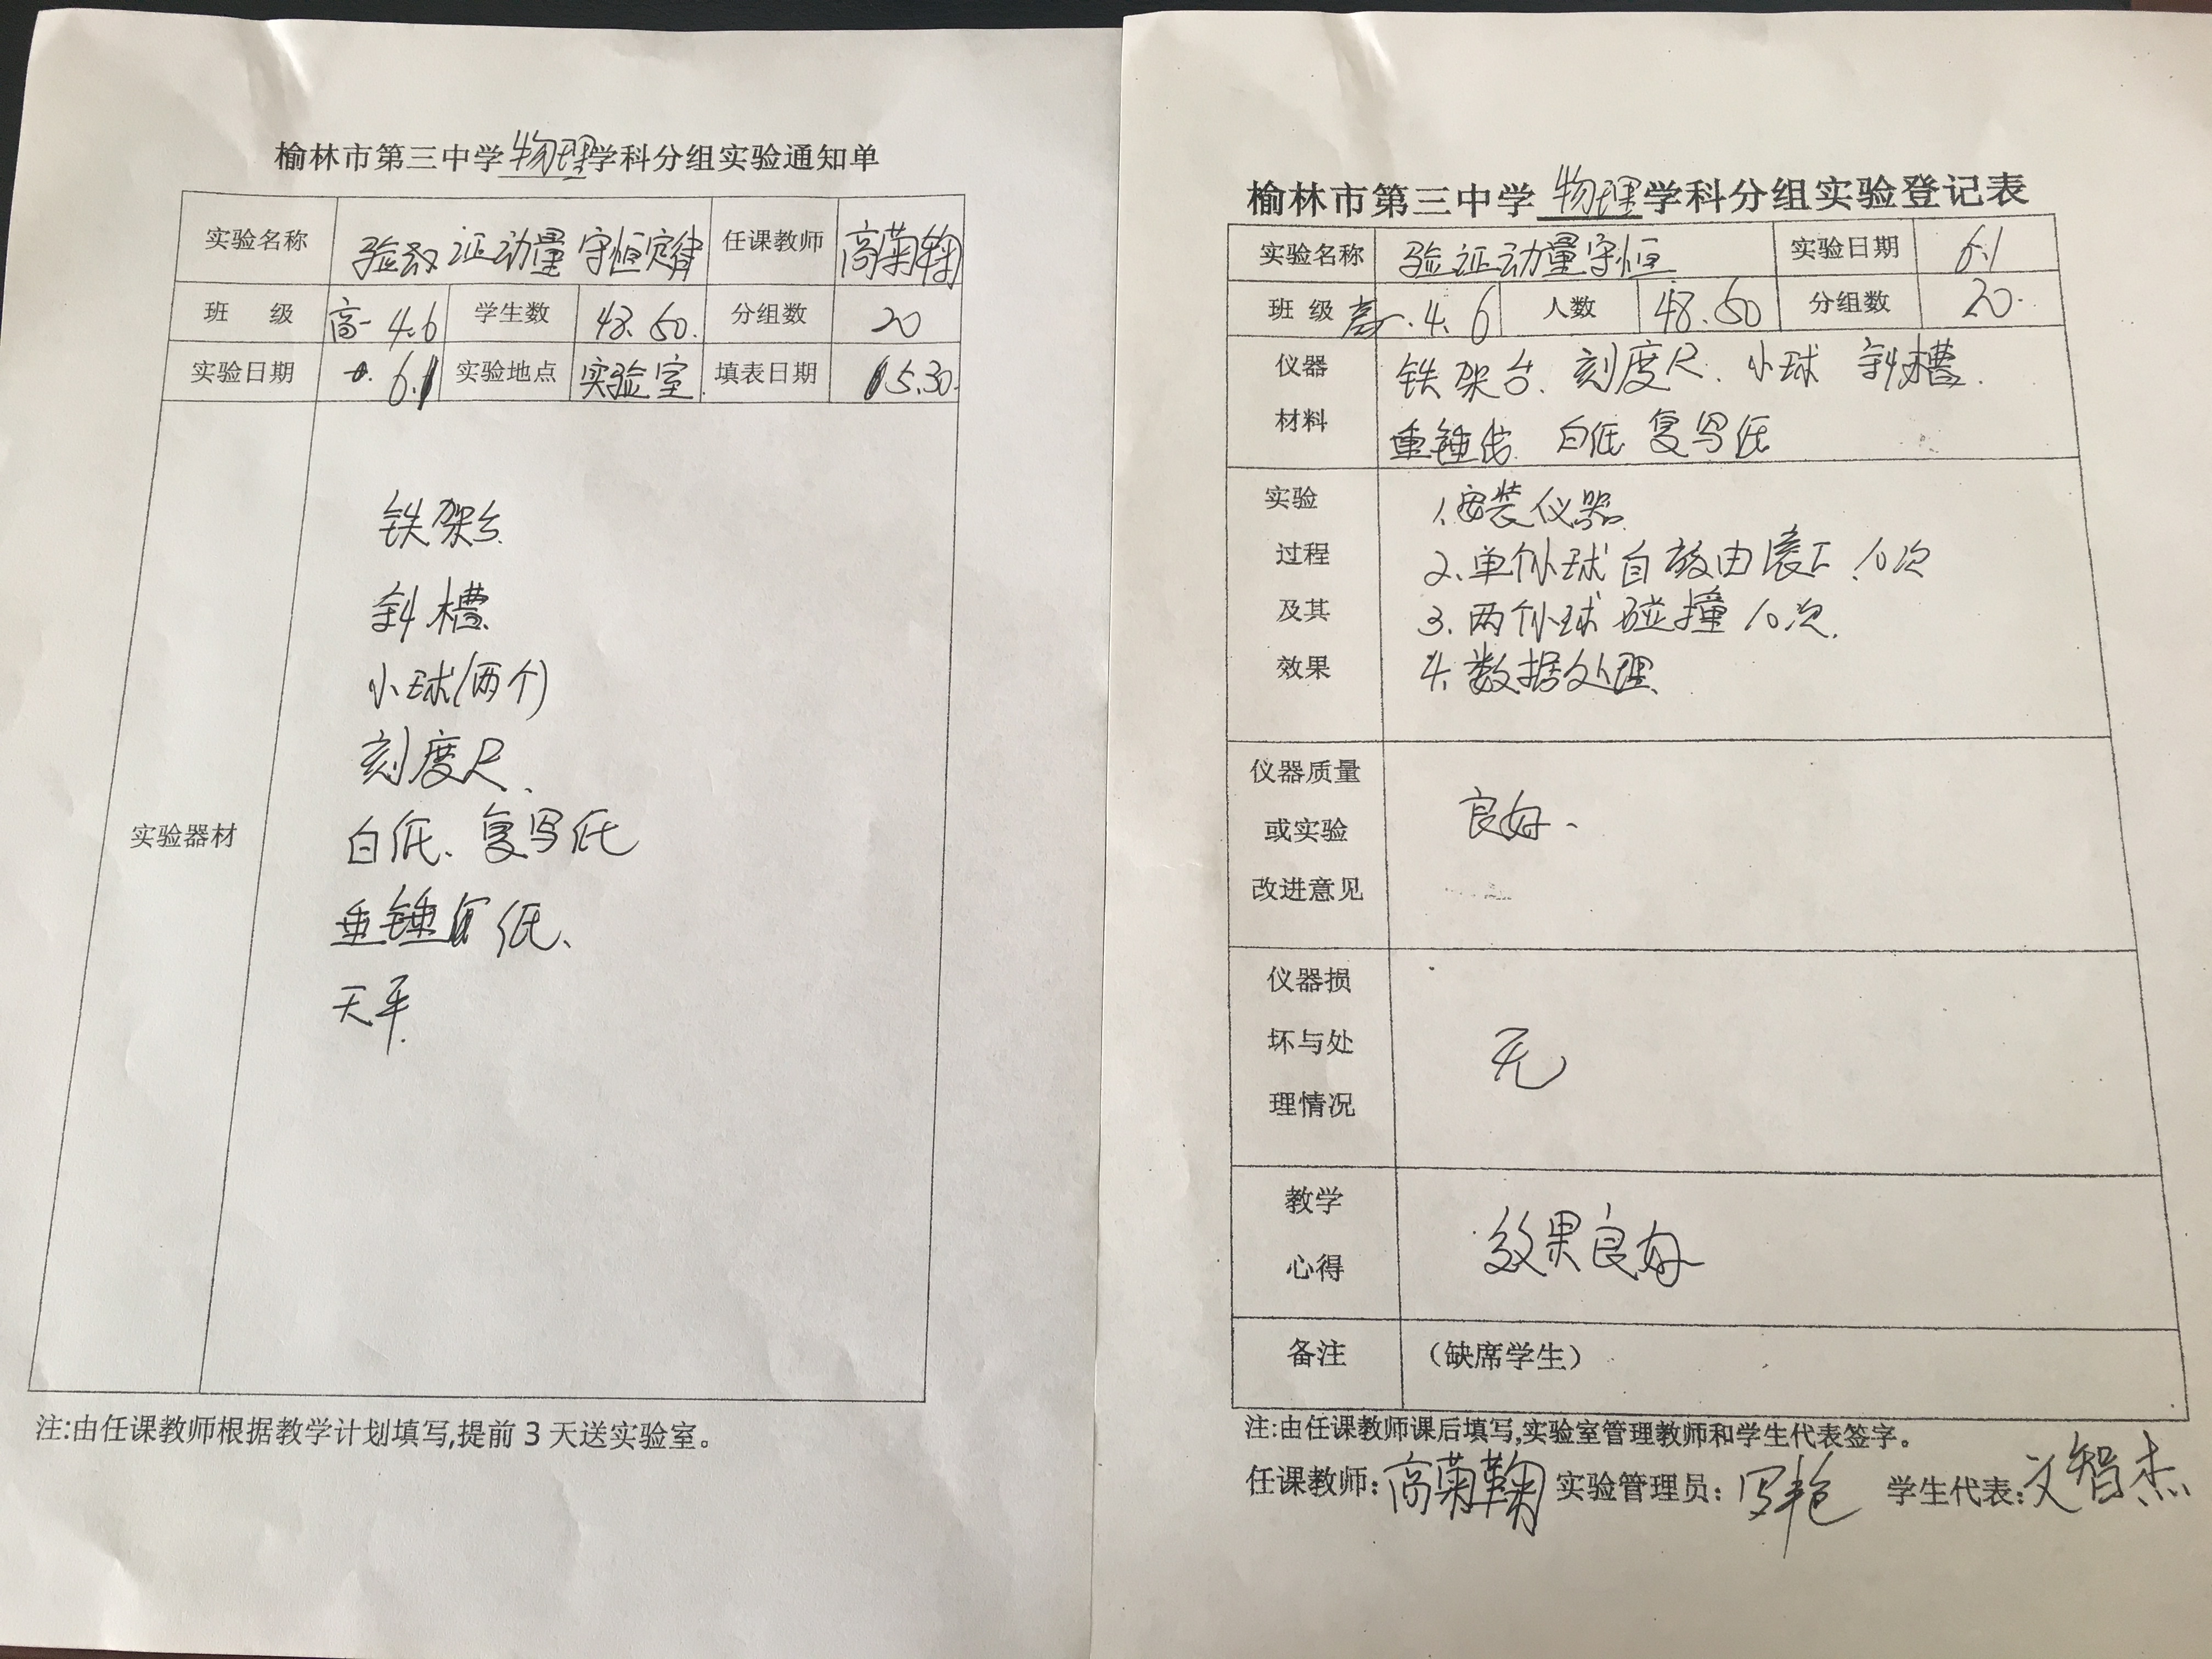 榆林市第三中学物理学科分组实验通知单
实验名称 验证动量守恒定律 任课教师 高菊鞠
班 级 高一 4.6 学生数 48. 50. 分组数 20
实验日期 6.1 实验地点 实验室 填表日期 5.30.
实验器材
铁架台
斜槽
小球(两个)
刻度尺、
白纸、复写纸
重锤 纸、
天平
注:由任课教师根据教学计划填写,提前 3 天送实验室。
榆林市第三中学物理学科分组实验登记表
实验名称 验证动量守恒 实验日期 6.1
班 级 高一.4.6 人数 48.50 分组数 20.
仪器 铁架台、刻度尺、小球 斜槽.
材料 重锤线 白纸 复写纸
实验 1、安装仪器
过程 2、单个小球自由滚下10次
及其 3.两个小球碰撞10次.
效果 4.数据处理
仪器质量
或实验 良好、
改进意见
仪器损
坏与处 无
理情况
教学
心得 效果良好
备注 （缺席学生）
注:由任课教师课后填写,实验室管理教师和学生代表签字。
任课教师:高菊鞠 实验管理员: 学生代表:文智杰